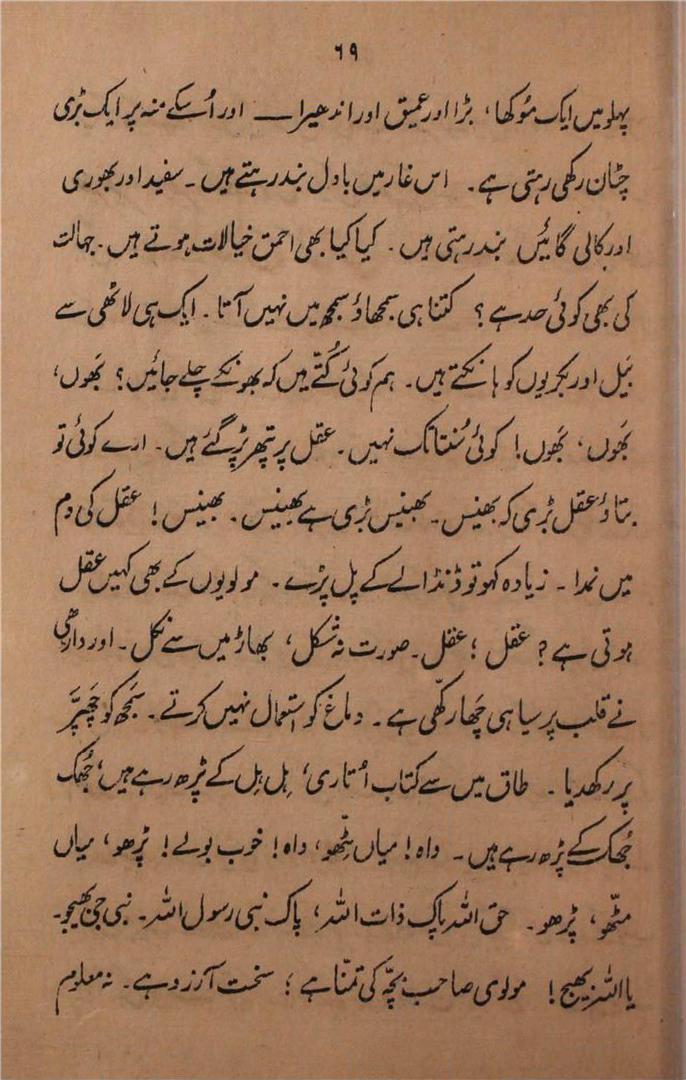 ۶۹
پہلو میں ایک موکھا، بڑا اور عمیق اور اندھیرا ـــ اور اُسکے منہ پر ایک بڑی
چٹان رکھی رہتی ہے۔ اس غار میں بادل بند رہتے ہیں۔ سفید اور بھوری
اور کالی گائیں بند رہتی ہیں۔ کیا کیا بھی احمق خیالات ہوتے ہیں۔ جہالت
کی بھی کوئی حد ہے؟ کتنا ہی سمجھاؤ سمجھ میں نہیں آتا۔ ایک ہی لاٹھی سے
بَیل اور بکریوں کو ہانکتے ہیں۔ ہم کوئی کُتّے ہیں کہ بھونکے چلے جائیں؟ بَھوں،
بَھوں، بَھوں! کوئی سُنتا تک نہیں۔ عقل پر پتھر پڑ گئے ہیں۔ ارے کوئی تو
بتاؤ عقل بڑی کہ بھینس۔ بھینس بڑی ہے بھینس۔ بھینس! عقل کی دم
میں نمدا۔ زیادہ کہو تو ڈنڈا لے کے پل پڑے۔ مولویوں کے بھی کہیں عقل
ہوتی ہے؟ عقل؛ عقل۔ صورت نہ شکل، بھاڑ میں سے نکل۔ اور داڑھی
نے قلب پر سیاہی چَھا رکھّی ہے۔ دماغ کو استعمال نہیں کرتے۔ سَمجھ کو چَھپّر
پر رکھدیا۔ طاق میں سے کتاب اُتاری، ہِل ہِل کے پڑھ رہے ہیں، جُھک
جُھک کے پڑھ رہے ہیں۔ واہ! میاں مِٹّھو، واہ! خوب بولے! پڑھو، میاں
مٹّھو، پڑھو۔ حق اللہ پاک ذات اللہ، پاک نبی رسول اللہ۔ نبی جی بھیجو۔
یا اللہ بھیج! مولوی صاحب بچّہ کی تمنّا ہے؛ سخت آرزو ہے۔ نہ معلوم